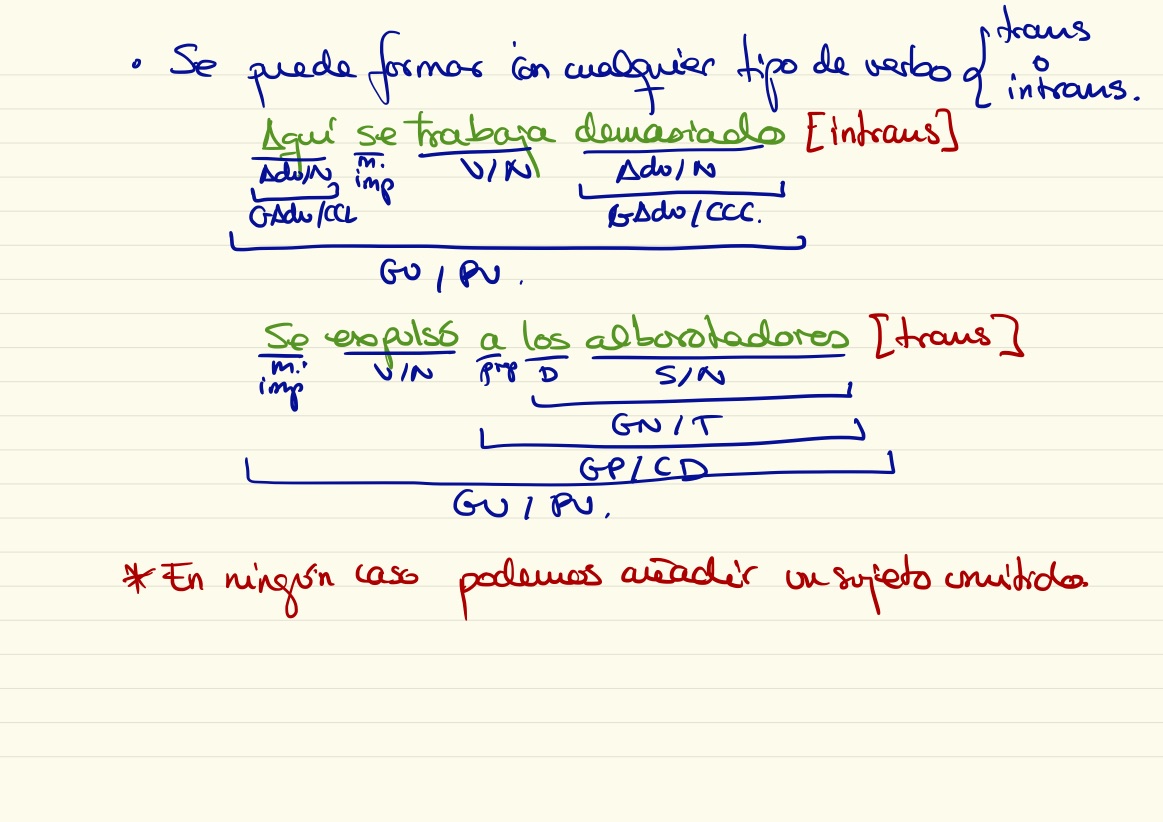 • Se puede formar con cualquier tipo de verbo { trans o intrans.
Aquí se trabaja demasiado [intrans]
Adv/N m. imp V/N Adv/N
GAdv/CCL GAdv/CCC.
GV / PV.
Se expulsó a los alborotadores [trans]
m. imp V/N prep D S/N
GN/T
GP/CD
GV / PV.
* En ningún caso podemos añadir un sujeto omitido.